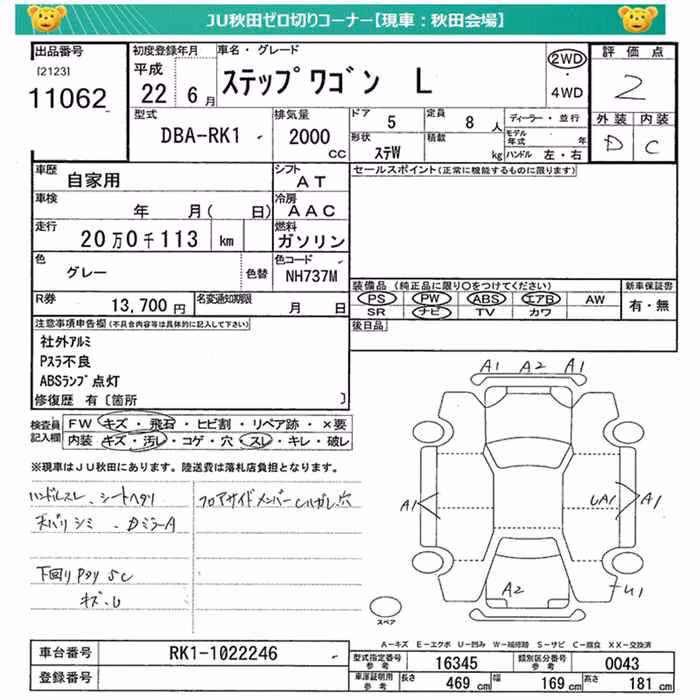 JU秋田ゼロ切りコーナー【現車：秋田会場】
出品番号
[2123]
11062
初度登録年月
平成
22 6月
車名・グレード
ステップワゴン L
2WD
・
4WD
評価点
2
外装 内装
D C
型式
DBA-RK1
排気量
2000
CC
ドア 5
定員 8人
ディーラー・並行
形状 ステW
積載 kg
モデル年式 年
ハンドル 左・右
車歴 自家用
シフト AT
セールスポイント(正常に機能するものに限ります)
車検 年 月( 日)
冷房 AAC
走行 20万0千113 km
燃料 ガソリン
色 グレー 色替
色コード NH737M
装備品 (純正品に限り○をつけてください)
新車保証書
PS PW ABS エアB AW
有・無
SR ナビ TV カワ
R券 13,700円
名変通知期限 月 日
後日品
注意事項申告欄(不具合内容等は具体的に記入して下さい)
社外アルミ
Pスラ不良
ABSランプ点灯
修復歴 有〔箇所 〕
検査員記入欄
FW キズ・飛石・ヒビ割・リペア跡・×要
内装 キズ・汚レ・コゲ・穴・スレ・キレ・破レ
※現車はJU秋田にあります。陸送費は落札店負担となります。
ハンドルスレ、シートヘタリ
天バリシミ
下回りPタリ SC
キズ・U
A1 A2 A1
A1
UA1 A1
A2
U1
スペア
A-キズ E-エクボ U-凹み W-補修跡 S-サビ C-腐食 XX-交換済
車台番号 RK1-1022246
型式指定番号 参考 16345
類別区分番号 参考 0043
登録番号
車庫証明用 参考
長さ 469 cm
幅 169 cm
高さ 181 cm